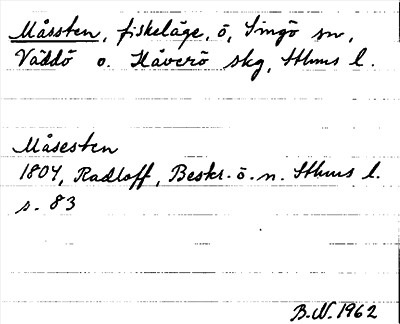 Måssten, fiskeläge, ö, Singö sn,
Väddö o. Häverö skg, Sthms l.
Måsesten
1804, Radloff, Beskr. ö. n. Sthms l.
s. 83
B.N. 1962